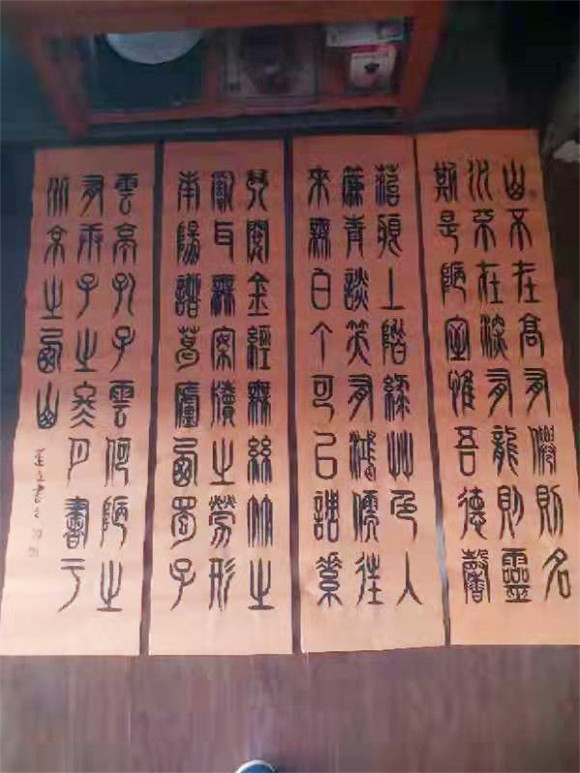 山不在高有僊則名
水不在深有龍則靈
斯是陋室惟吾德馨
苔痕上階綠艸色入
簾青談笑有鴻儒往
來無白丁可以調素
琴閱金經無絲竹之
亂耳無案牘之勞形
南陽諸葛廬西蜀子
雲亭孔子雲何陋之
有子之冬月書于
之西山